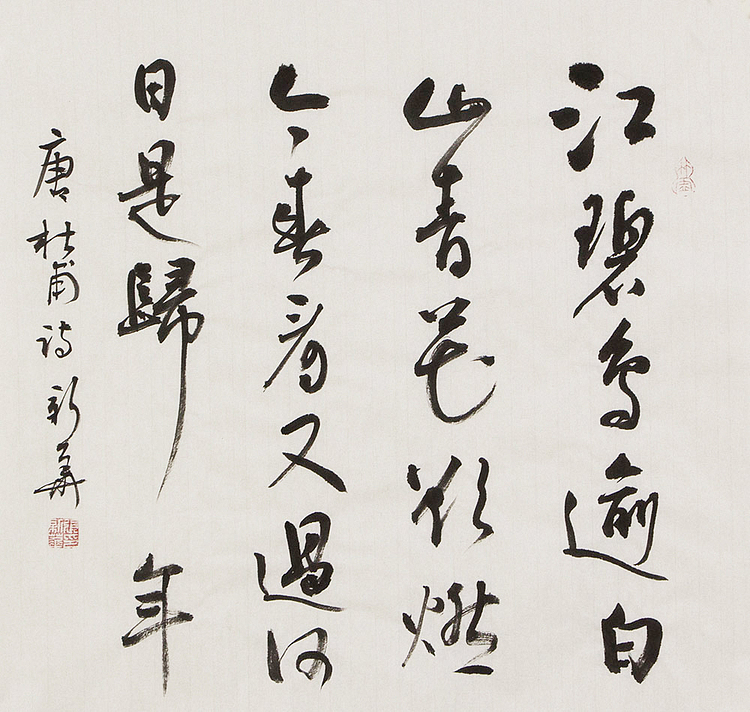 江碧鸟逾白
山青花欲燃
今春看又過何
日是歸年
唐杜甫诗 新華